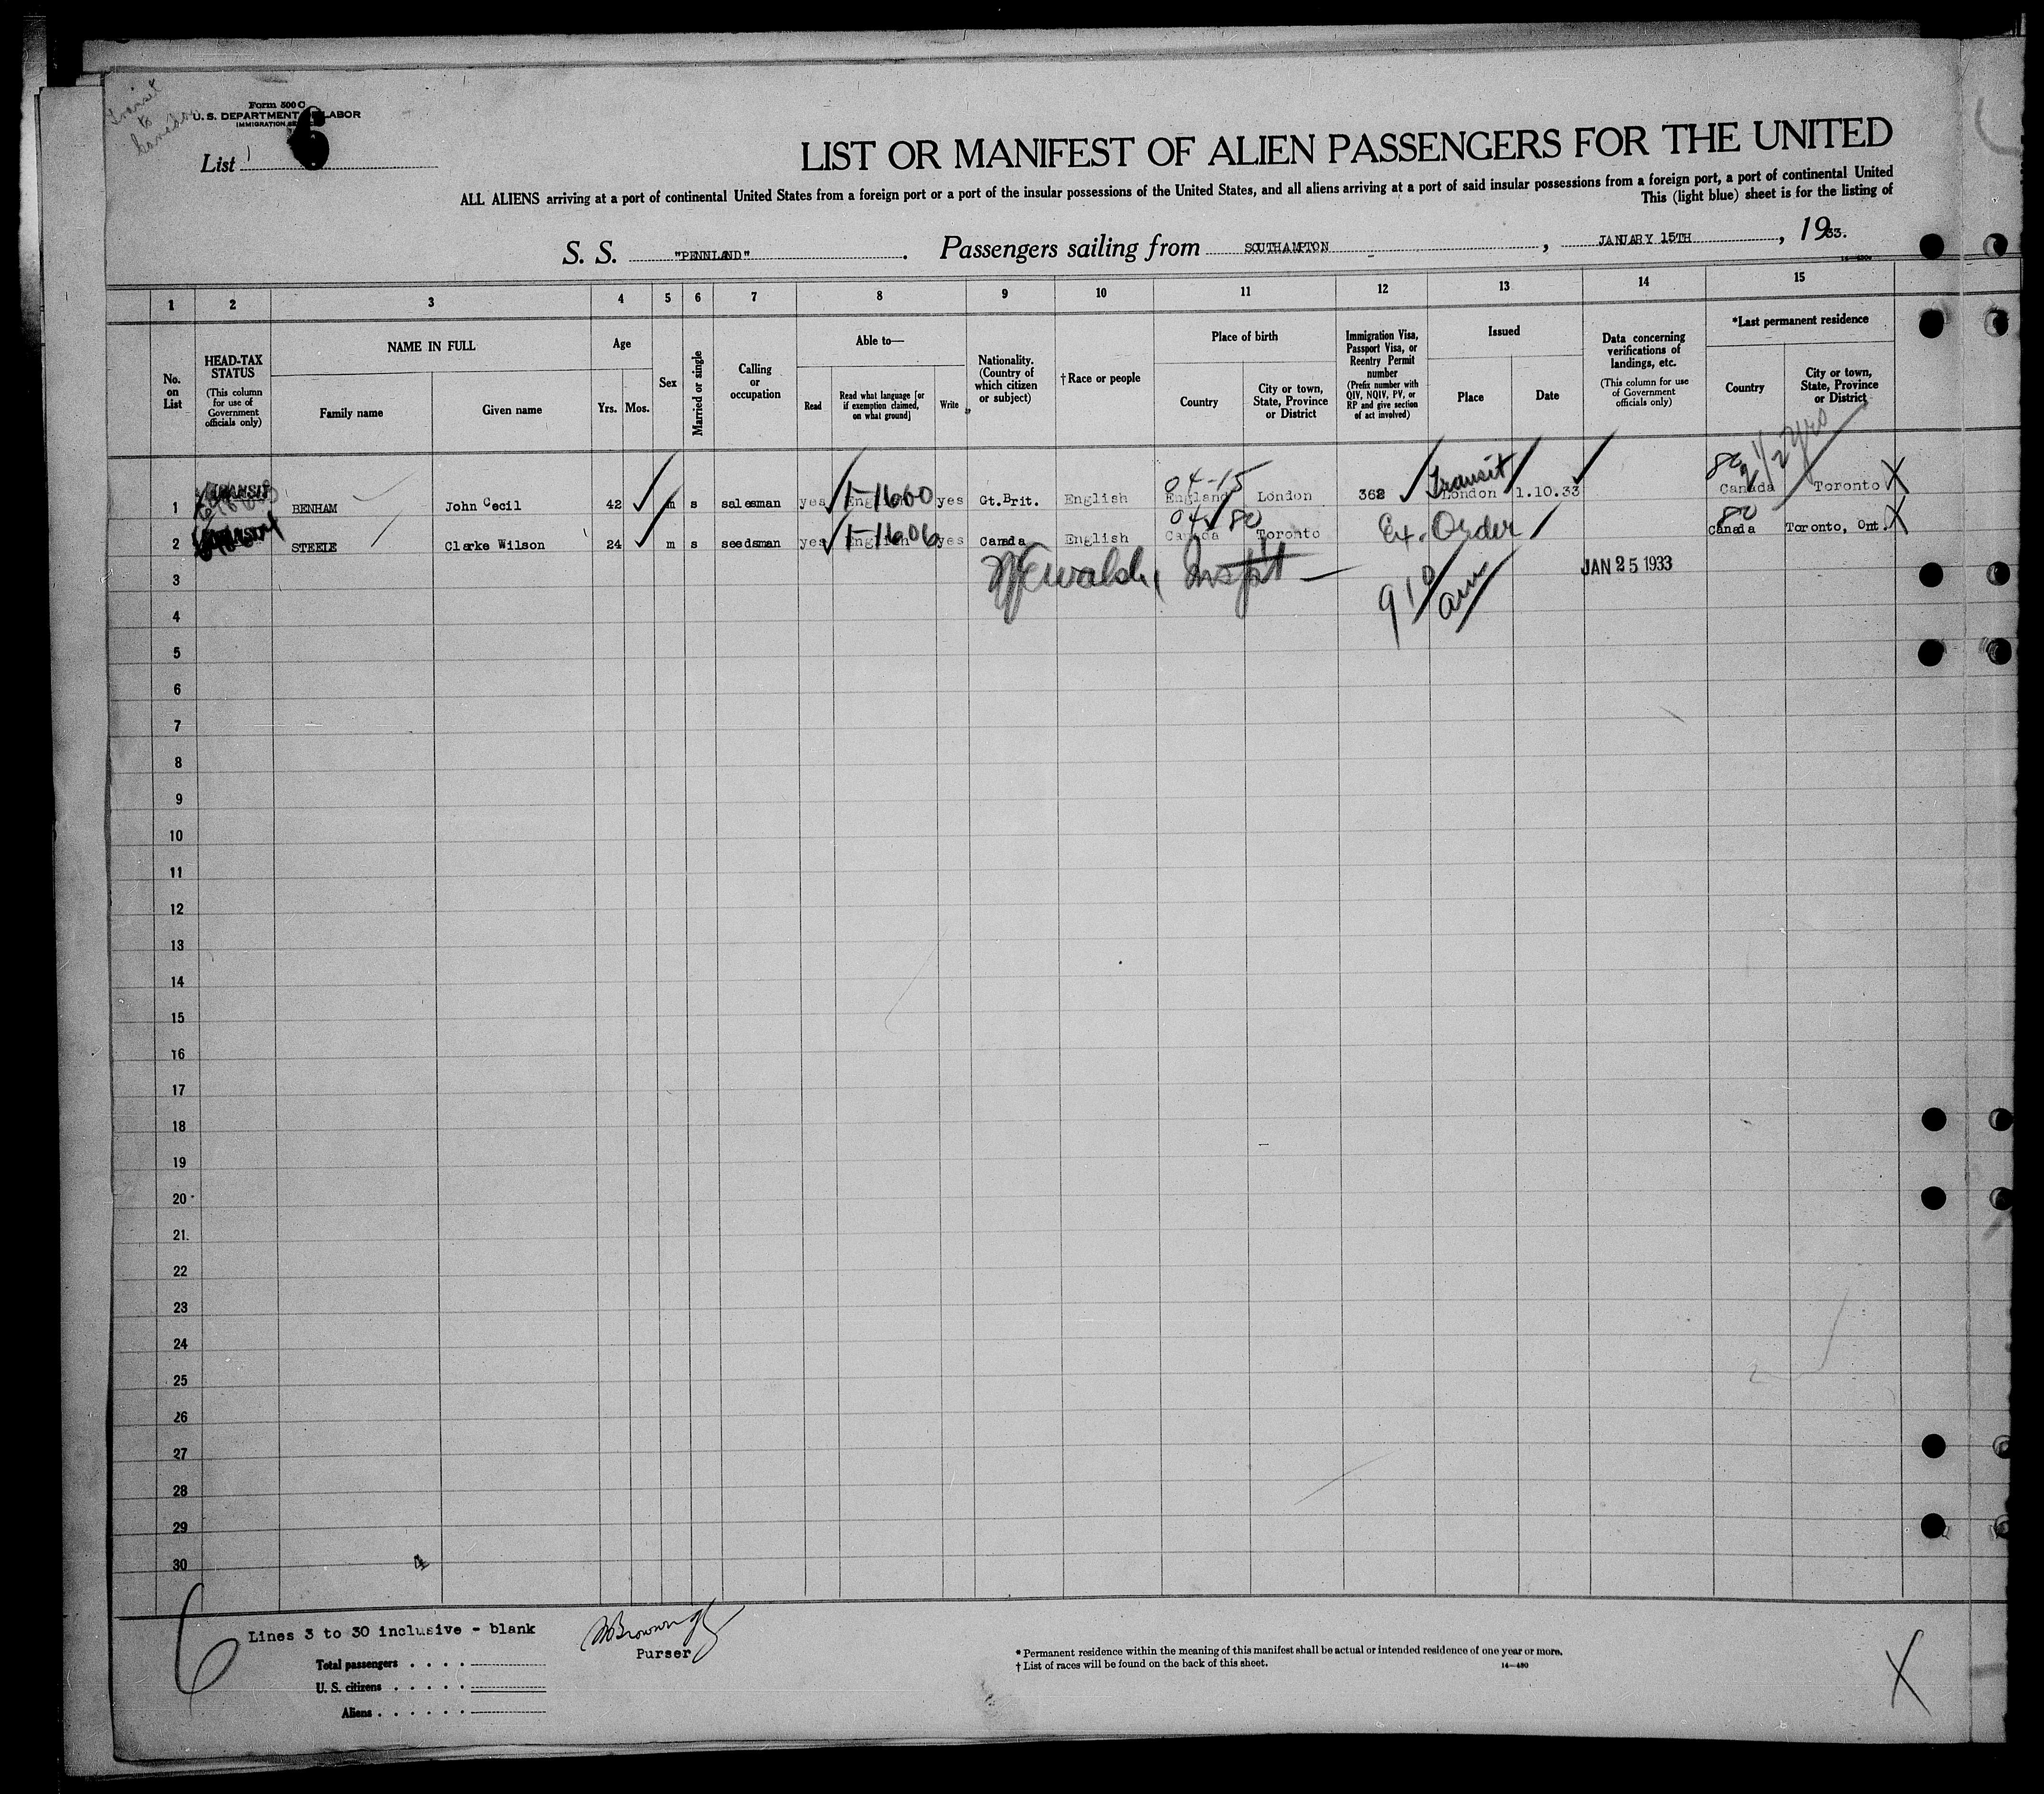 Transit
to
Form 500 C
U. S. DEPARTMENT LABOR
IMMIGRATION
List 1 6
LIST OR MANIFEST OF ALIEN PASSENGERS FOR THE UNITED
ALL ALIENS arriving at a port of continental United States from a foreign port or a port of the insular possessions of the United States, and all aliens arriving at a port of said insular possessions from a foreign port, a port of continental United
This (light blue) sheet is for the listing of
S. S. "PENNLAND". Passengers sailing from SOUTHAMPTON, JANUARY 15TH, 1933.
1 2 3 4 5 6 7 8 9 10 11 12 13 14 15
No. on List
HEAD-TAX STATUS (This column for use of Government officials only)
NAME IN FULL
Family name
Given name
Age
Yrs. Mos.
Sex
Married or single
Calling or occupation
Able to—
Read
Read what language [or if exemption claimed, on what ground]
Write
Nationality. (Country of which citizen or subject)
† Race or people
Place of birth
Country
City or town, State, Province or District
Immigration Visa, Passport Visa, or Reentry Permit number (Prefix number with QIV, NQIV, PV, or RP and give section of act involved)
Issued
Place
Date
Data concerning verifications of landings, etc. (This column for use of Government officials only)
*Last permanent residence
Country
City or town, State, Province or District
04-15 Transit 80 2 1/2 yrs
1 TRANSIT BENHAM John Cecil 42 m s salesman yes English 1-1660 yes Gt.Brit. English England London 362 London 1.10.33 Canada Toronto X
04 80 80
2 STEELE Clarke Wilson 24 m s seedsman yes English 1-1606 yes Canada English Canada Toronto Ex. Order Canada Toronto, Ont. X
3 Insp't 9 10 am JAN 25 1933
4
5
6
7
8
9
10
11
12
13
14
15
16
17
18
19
20
21
22
23
24
25
26
27
28
29
30 4
6
Lines 3 to 30 inclusive - blank
Purser
Total passengers . . . .
U. S. citizens . . . . .
Aliens . . . . . .
* Permanent residence within the meaning of this manifest shall be actual or intended residence of one year or more.
† List of races will be found on the back of this sheet.
14—430
X